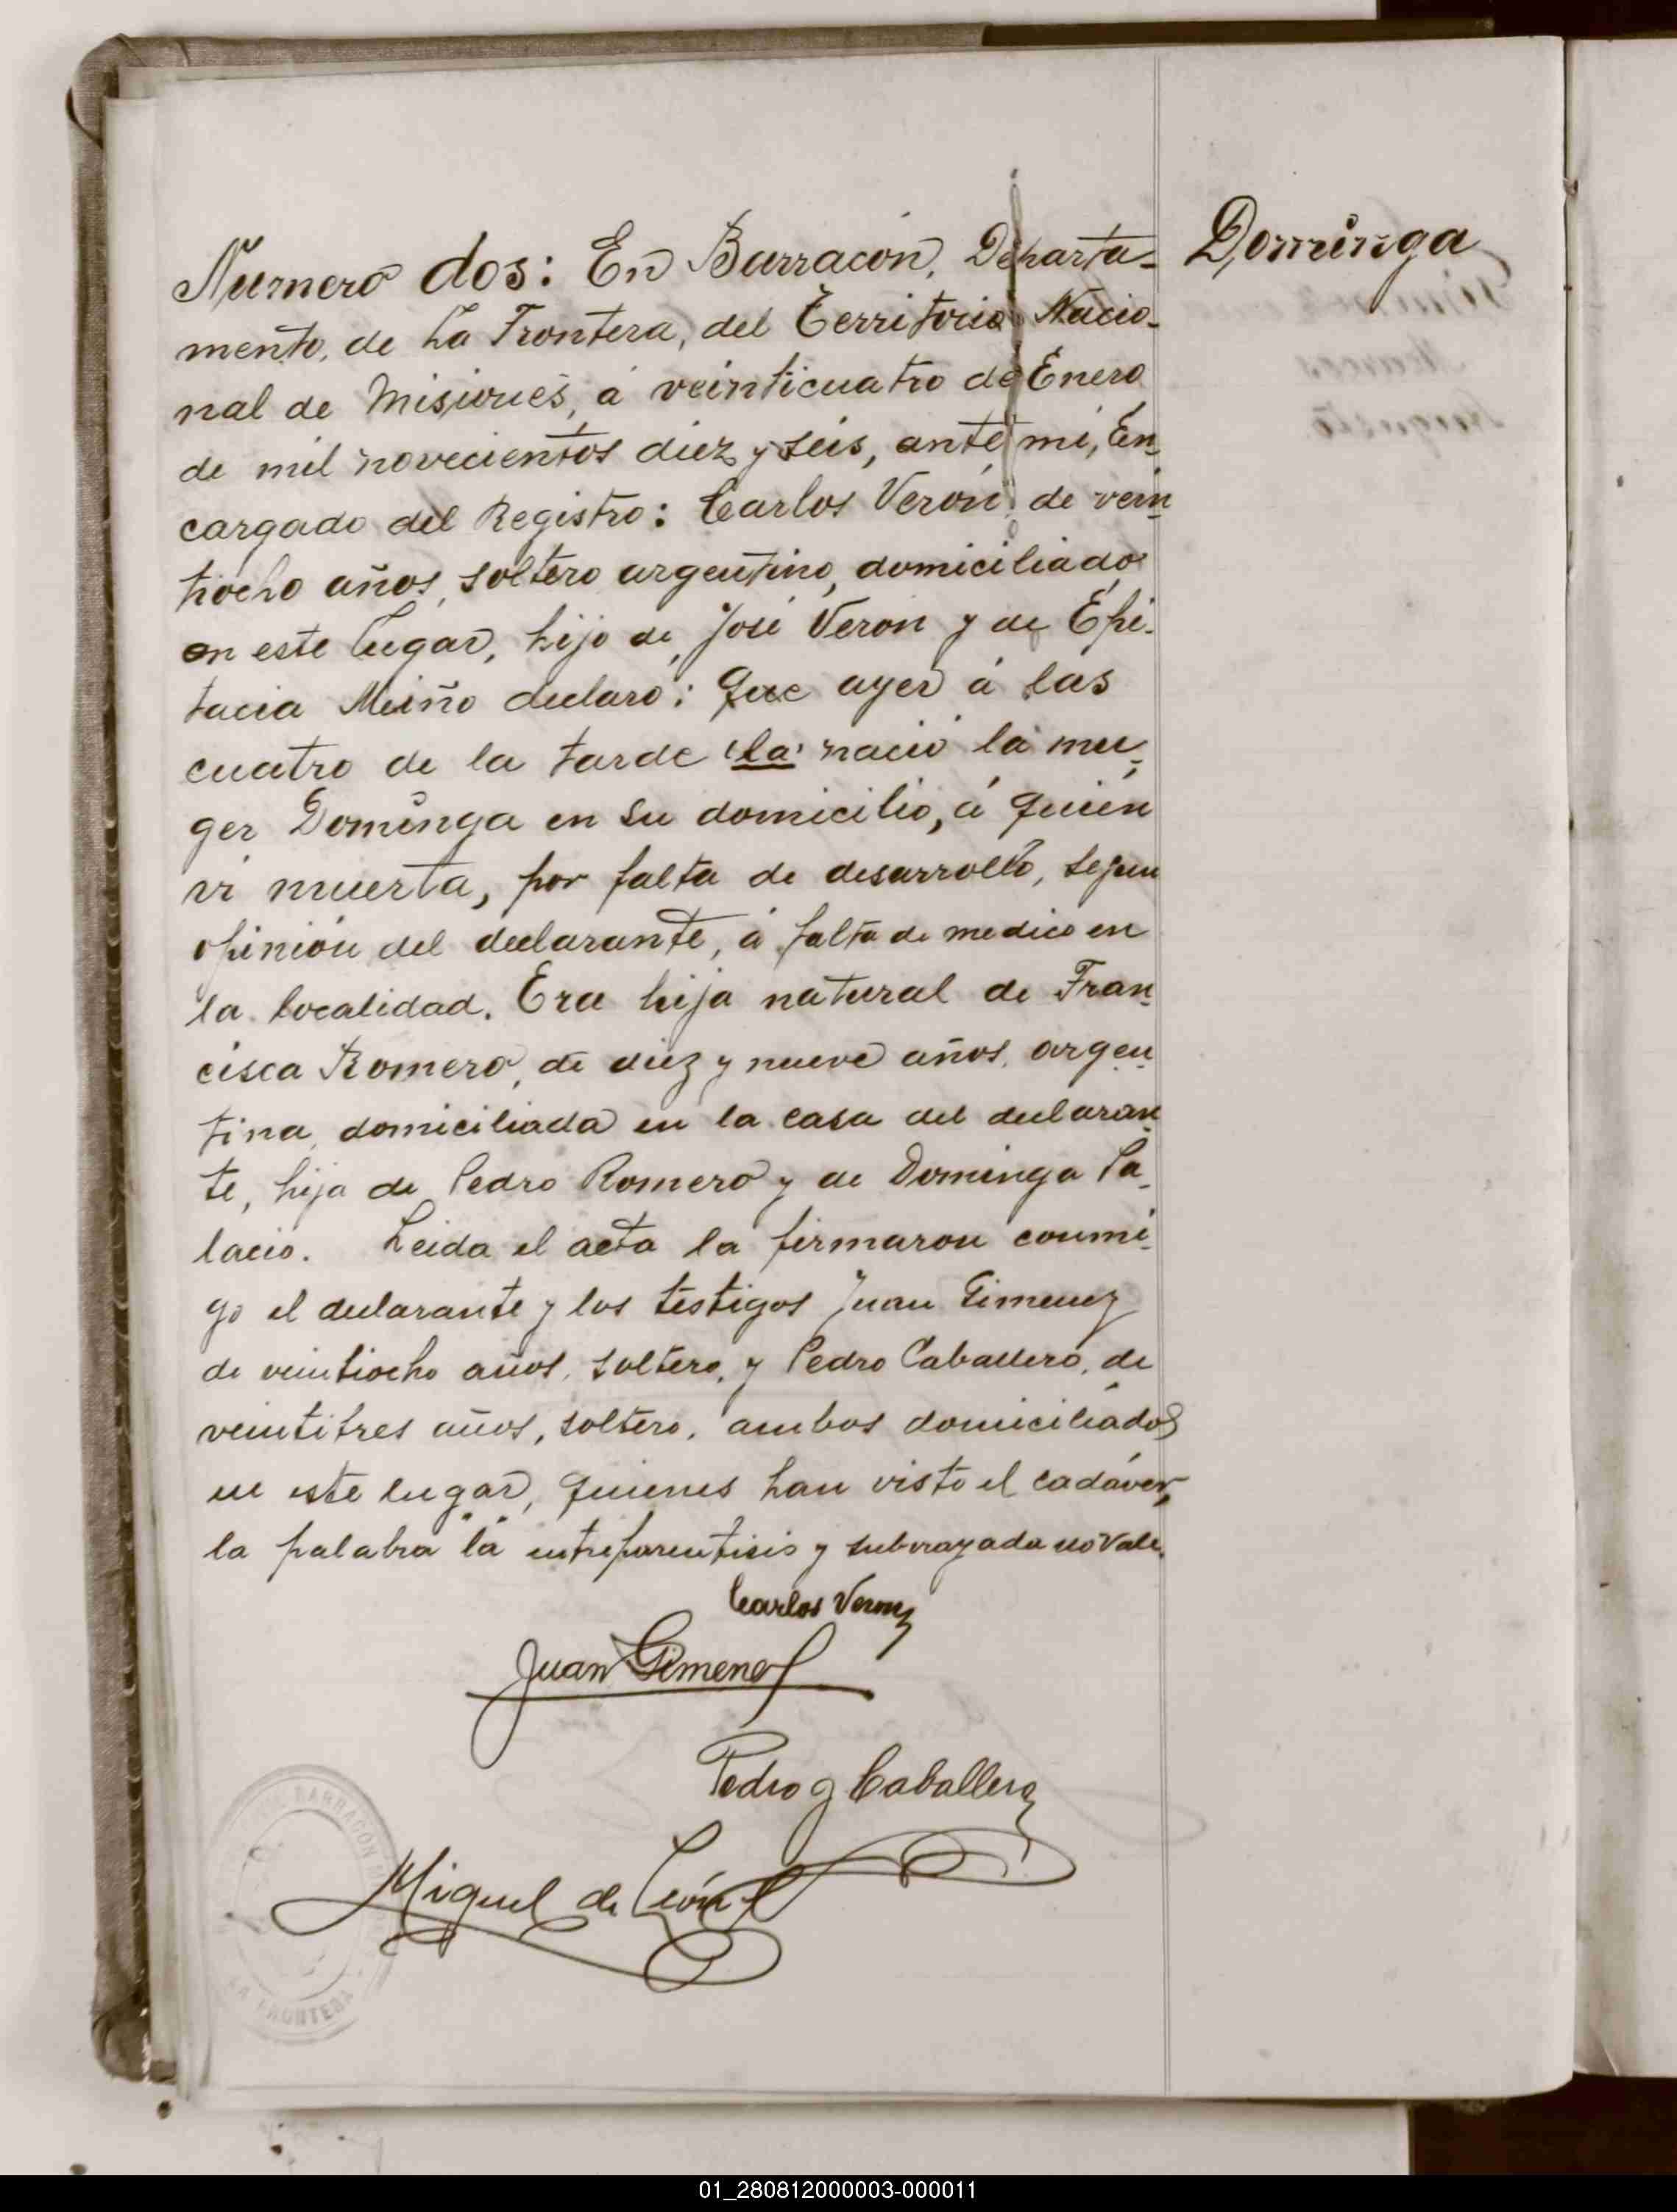 Numero dos: En Barracón, Departa-
mento, de La Frontera, del Territorio Nacio-
nal de Misiones, á veinticuatro de Enero
de mil novecientos diez y seis, ante mi, En-
cargado del Registro: Carlos Verón, de vein-
tiocho años, soltero argentino, domiciliado
en este lugar, hijo de José Veron y de Epi-
tacia Miño declaró: Que ayer á las
cuatro de la tarde (la) nació la mu-
ger Dominga en su domicilio, á quien
vi muerta, por falta de desarrollo, segun
opinión del declarante, á falta de medico en
la localidad. Era hija natural de Fran-
cisca Romero, de diez y nueve años, argen-
tina, domiciliada en la casa del declaran-
te, hija de Pedro Romero y de Dominga Pa-
lacio. Leida el acta la firmaron conmi-
go el declarante y los testigos Juan Gimenez
de veintiocho años, soltero, y Pedro Caballero, de
veintitres años, soltero, ambos domiciliados
en este lugar, quienes han visto el cadáver,
la palabra "la" entreparentisis y subrayada no vale.
Carlos Veron
Juan Gimenez
Pedro G Caballero
Miguel de León
Dominga
BARRACON
LA FRONTERA
01_280812000003-000011